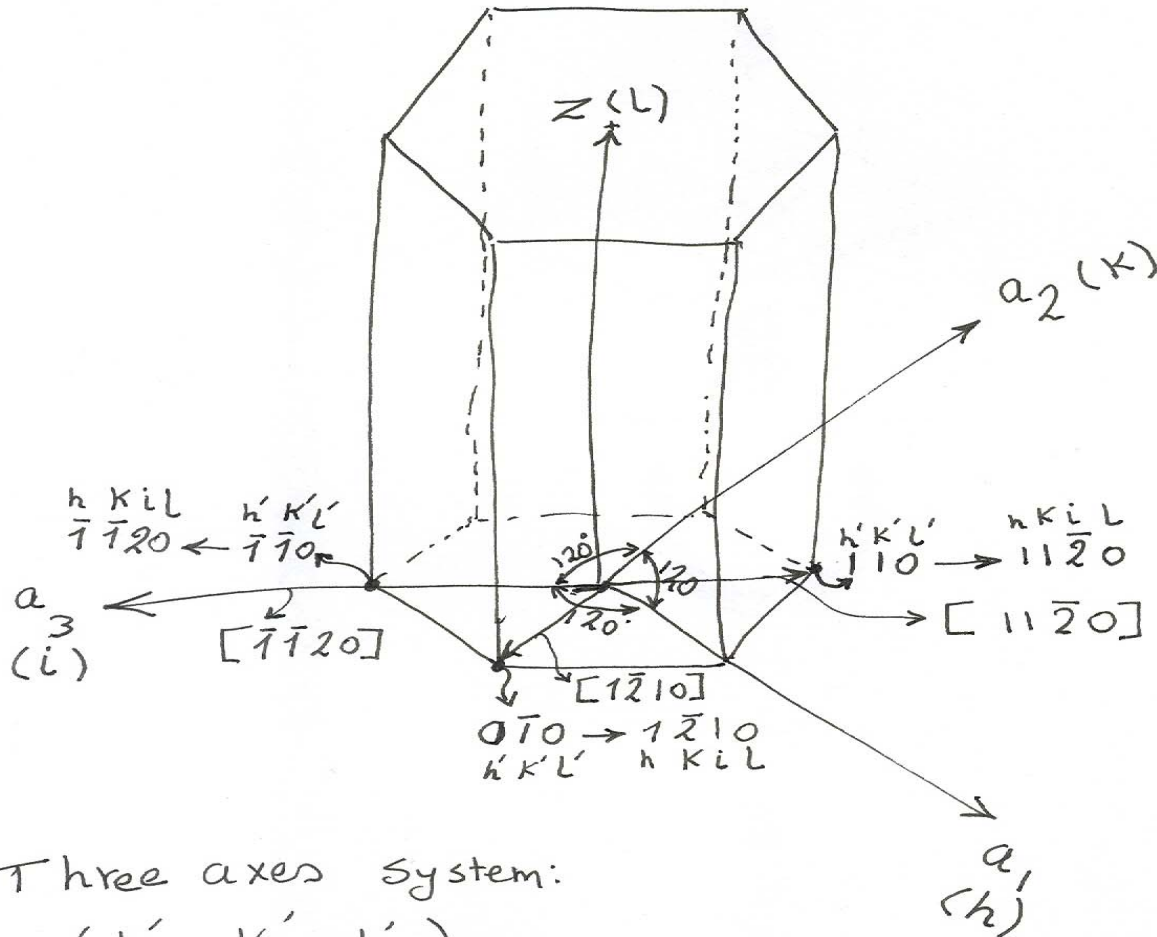 Z (L)
a₂ (K)
h K i L
1̄ 1̄ 2 0 ← h' K' L' 1̄ 1̄ 0
h' K' L' 1 1 0 → h K i L 1 1 2̄ 0
120°
120
120°
a₃
(i)
[1̄ 1̄ 2 0]
[1 1 2̄ 0]
[1 2̄ 1 0]
0 1̄ 0 → 1 2̄ 1 0
h' K' L' h K i L
a₁
(h)
Three axes system:
(h' K' L')